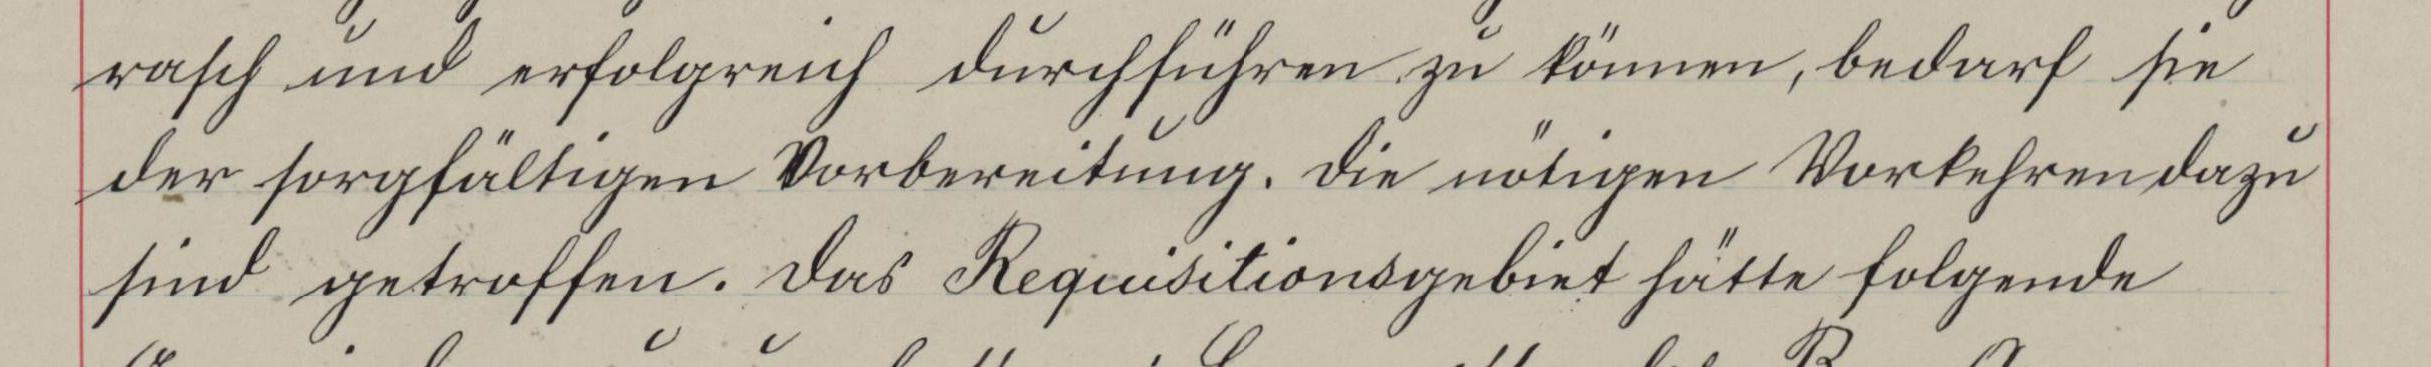 rasch und erfolgreich durchführen zu können, bedarf sie
der sorgfältigen Vorbereitung. Die nötigen Vorkehren dazu
sind getroffen. Das Requisitionsgebiet hätte folgende